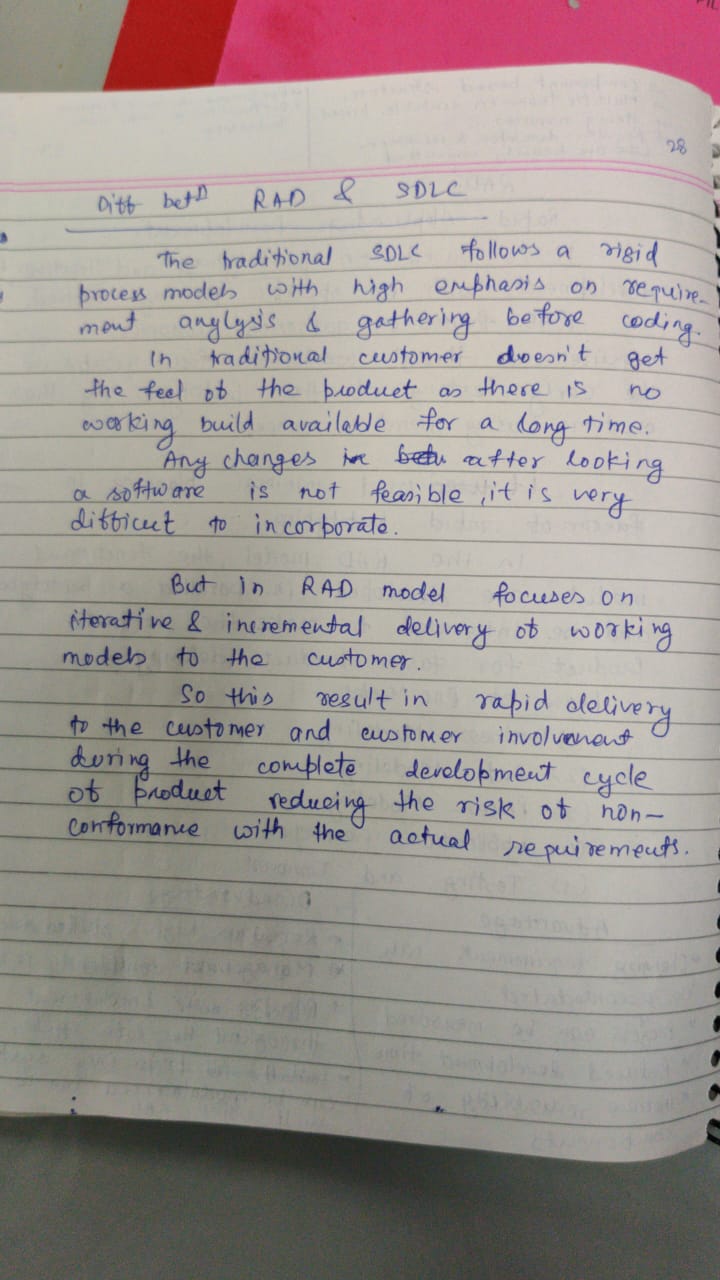 28
Diff betn RAD & SDLC
The traditional SDLC follows a rigid
process models with high emphasis on require-
ment anylysis & gathering before coding.
In traditional customer doesn't get
the feel of the product as there is no
working build available for a long time.
Any changes after looking
a software is not feasible, it is very
difficut to incorporate.
But in RAD model focuses on
iterative & incremental delivery of working
models to the customer.
So this result in rapid delivery
to the customer and customer involvement
during the complete development cycle
of product reducing the risk of non-
conformance with the actual requirements.